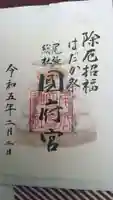 除厄招福
はだか祭
尾張
総社
国府宮
令和五年二月三日